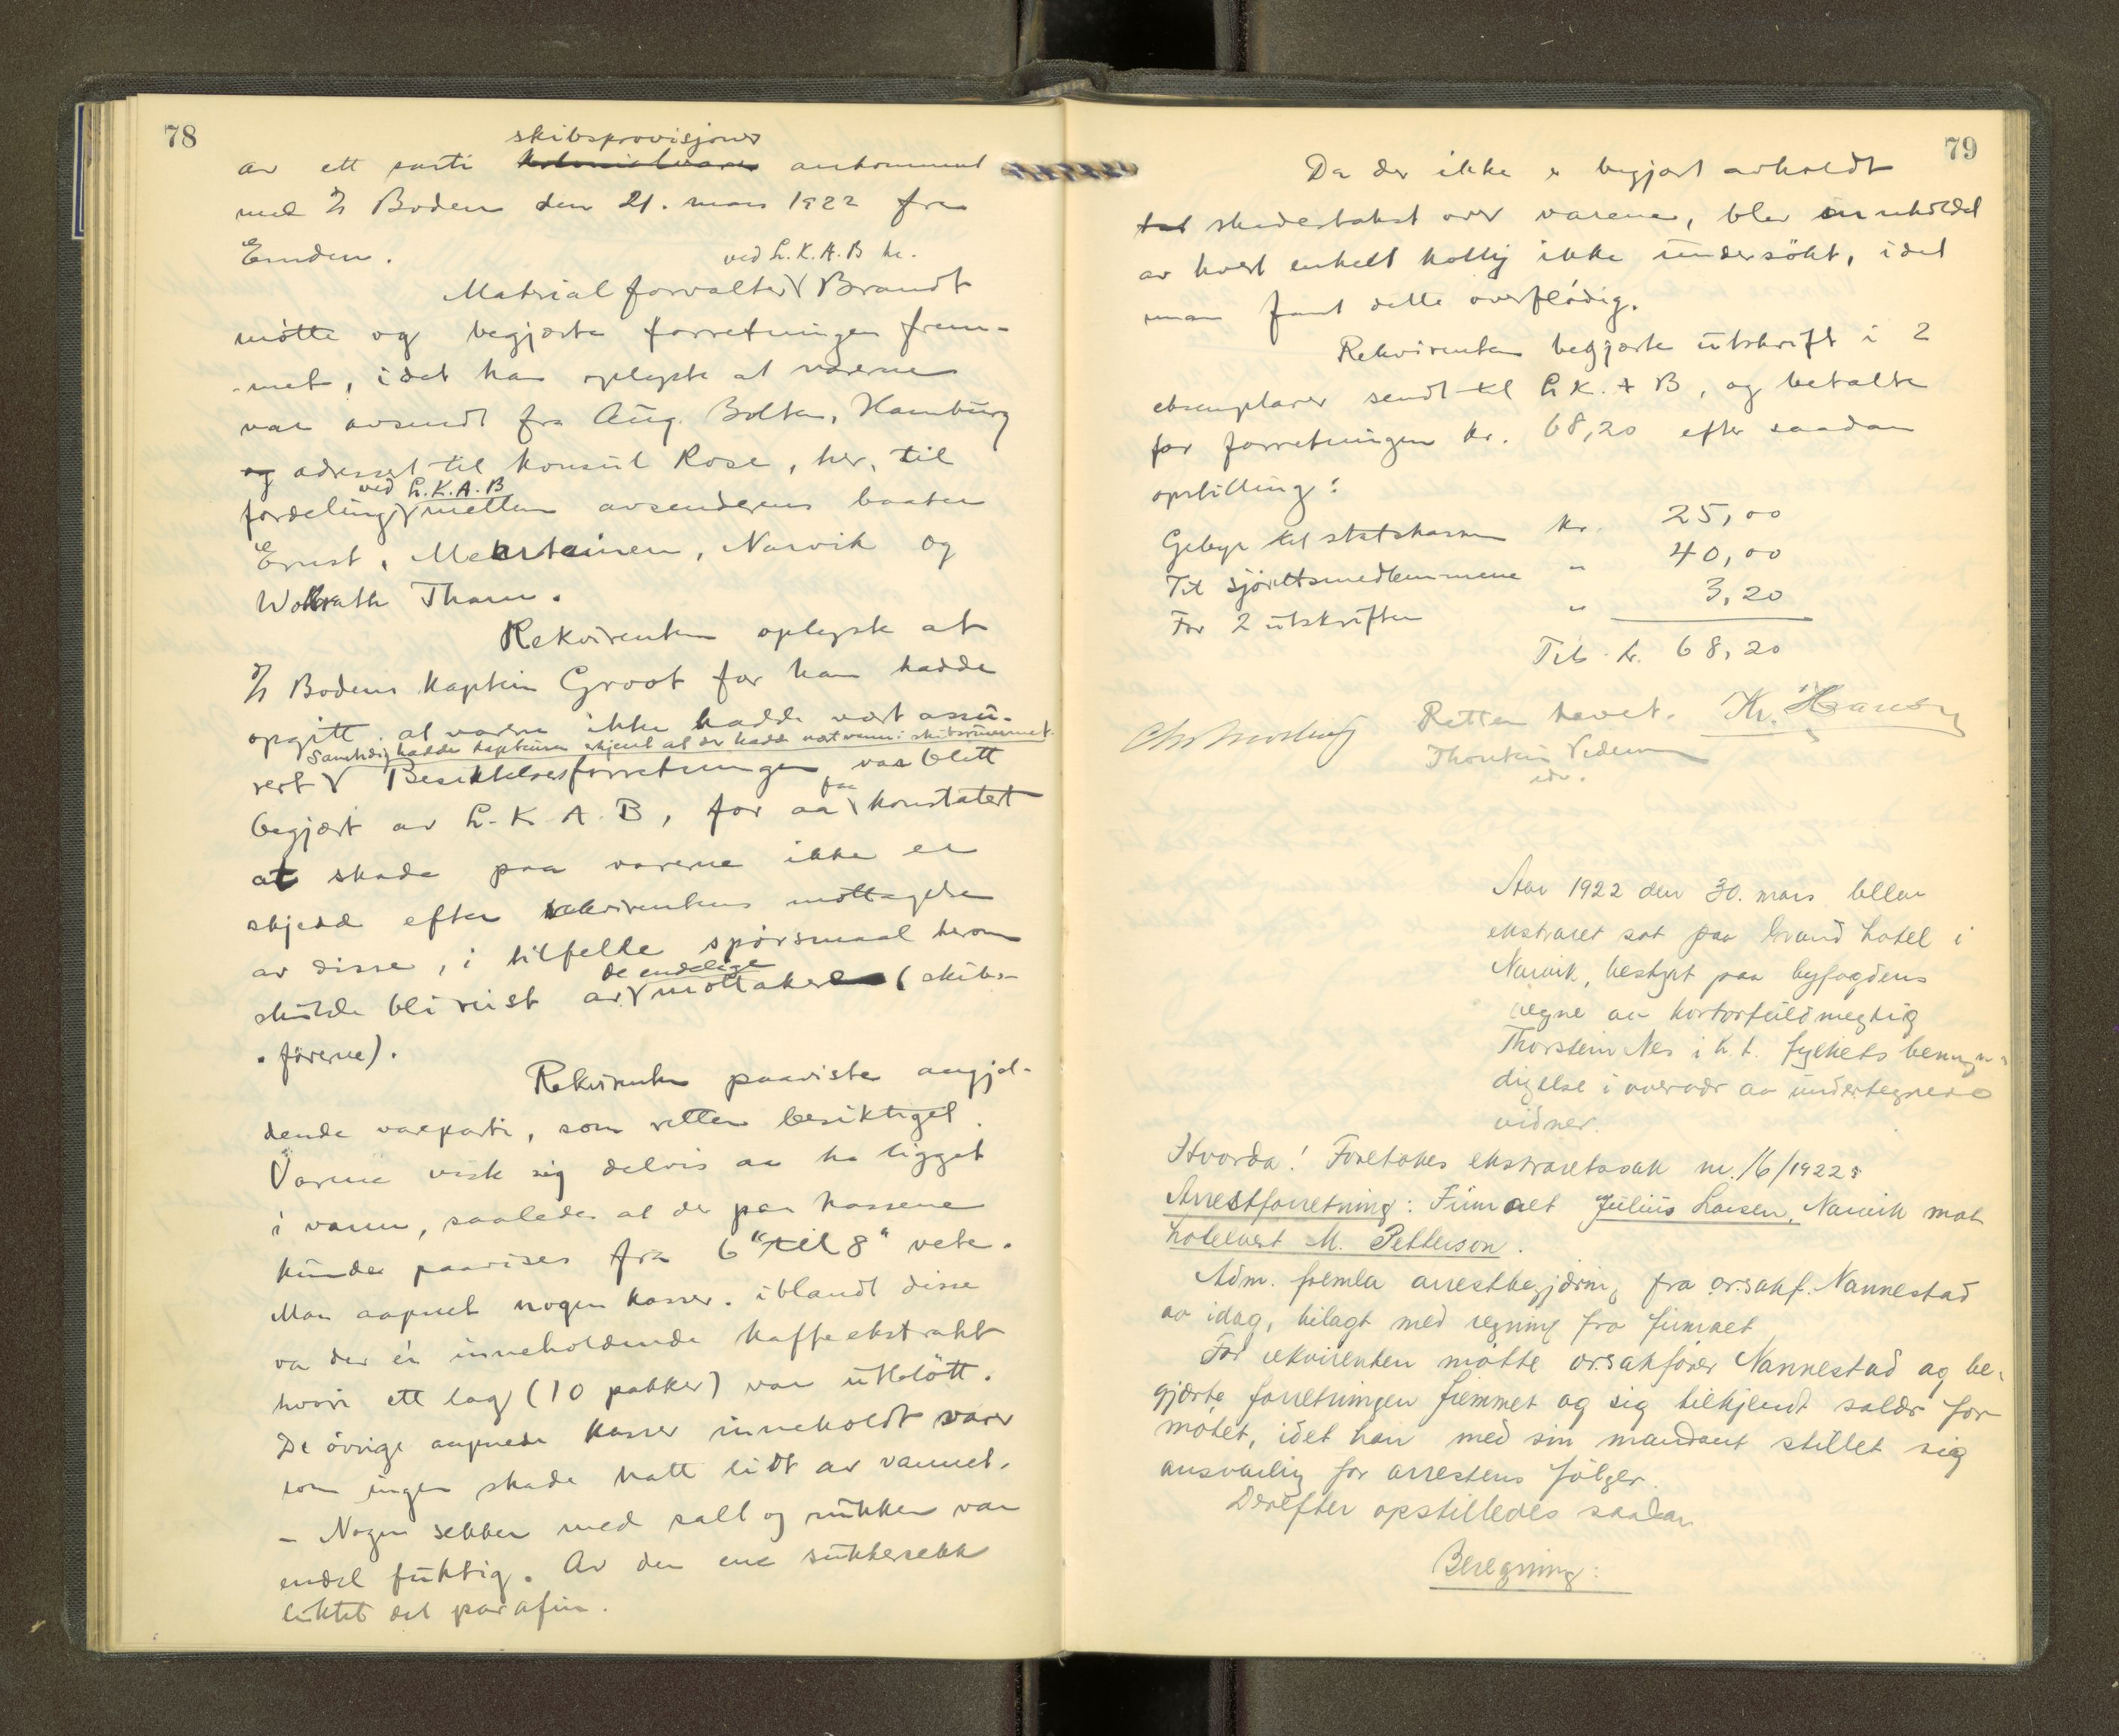 78
skibsprovisjoner
av ett parti kolonialvarer ankommet
med D/S Boden den 21. mars 1922 fra
Emden.
ved L.K.A.B her.
Materialforvalter Brandt
møtte og begjærte forretningen frem-
-met, idet han oplyste at varerne
var avsendt fra Aug. Bolten, Hamburg
og adressert til konsul Rose, her, til
ved L.K.A.B
fordeling mellem avsenderens baater
Ernst, Narvik og
Wollrath Tham.
Rekvirenten oplyste at
D/S Bodens kaptein Groot for ham hadde
opgitt at varerne ikke hadde vært assu-
Samtidig hadde kapteinen erkjent at der hadde vært vann i skibsrummet.
rert Besiktelsesforretningen var blitt
faa
begjært av L.K.A.B, for aa konstatert
at skade paa varerne ikke er
skjedd efter rekvirentens mottagelse
av disse, i tilfelde spørsmaal herom
de endelige
skulde bli reist av mottakere (skibs-
-førerne).
Rekvirenten paaviste angjæl-
dende vareparti, som retten besiktiget.
Varene viste sig delvis aa ha ligget
i vann, saaledes at der paa kassene
kunde paavises fra 6" til 8" vete.
Man aapnet nogen kasser. iblandt disse
var der én inneholdende kaffeekstrakt
hvori ett lag (10 pakker) var utbløtt.
De øvrige aapnede kasser inneholdt varer
som ingen skade hatt lidt av vannet.
- Nogen sekker med salt og sukker var
endel fuktig. Av den ene sukkersekk
luktet det parafin.
79
Da der ikke er begjært avholdt
skadestakst over varene, blev inneholdet
av hvert enkelt kolly ikke undersøkt, idet
man fant dette overflødig.
Rekvirenten begjærte utskrift i 2
eksemplarer sendt til L.K.A B, og betalte
for forretningen kr. 68,20 efter saadan
opstilling:
Gebyr til statskassen kr. 25,00
Til sjørettsmedlemmene " 40,00
For 2 utskrifter " 3,20
Tils. kr. 68,20
Retten hevet. Kr. Hansen
Thorstein
Aar 1922 den 30. mars blev
ekstraret sat paa Grand hotel i
Narvik, bestyrt paa byfogdens
vegne av kontorfuldmegtig
Thorstein Nes i h. t. fylkets bemyn-
digelse i overvær av undertegnede
vidner.
Hvorda! Foretokes ekstraretssak nr. 16/1922:
Arrestforretning: Firmaet Julius Larsen, Narvik mot
hotelvert M. Petterson.
Adm. fremla arrestbegjæring fra o.r.sakf. Nannestad
av idag, bilagt med regning fra firmaet
For rekvirenten møtte o.r.sakfører Nannestad og be-
gjærte forretningen fremmet og sig tilkjendt salær for
møtet, idet han med sin mandant stillet sig
ansvarlig for arrestens følger.
Derefter opstilledes saadan
Beregning: